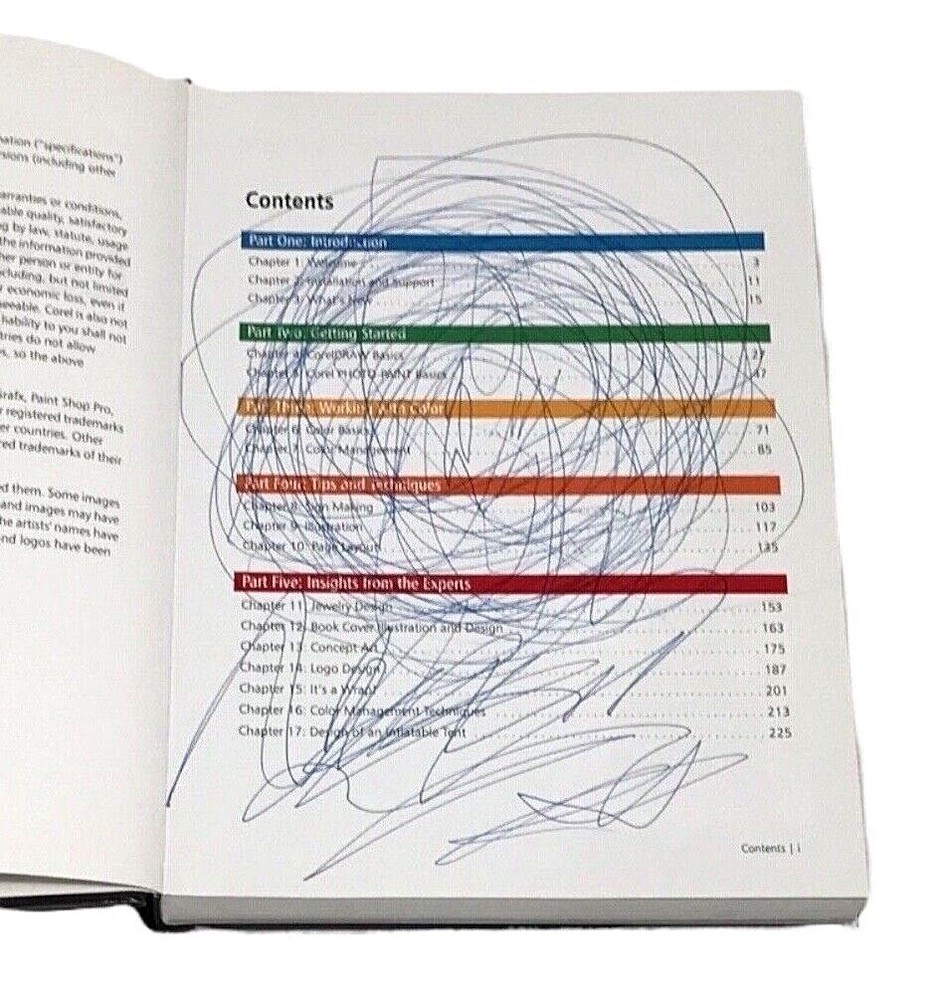 ation ("specifications")
sions (including other
arranties or conditions,
able quality, satisfactory
g by law, statute, usage
the information provided
her person or entity for
cluding, but not limited
economic loss, even if
seeable. Corel is also not
liability to you shall not
tries do not allow
s, so the above
Grafx, Paint Shop Pro,
r registered trademarks
er countries. Other
red trademarks of their
ed them. Some images
and images may have
he artists' names have
nd logos have been
Contents
Part One: Introduction
Chapter 1: Welcome 3
Chapter 2: Installation and Support 11
Chapter 3: What's New 15
Part Two: Getting Started
Chapter 4: CorelDRAW Basics 27
Chapter 5: Corel PHOTO-PAINT Basics 47
Part Three: Working with Color
Chapter 6: Color Basics 71
Chapter 7: Color Management 85
Part Four: Tips and Techniques
Chapter 8: Sign Making 103
Chapter 9: Illustration 117
Chapter 10: Page Layout 135
Part Five: Insights from the Experts
Chapter 11: Jewelry Design 153
Chapter 12: Book Cover Illustration and Design 163
Chapter 13: Concept Art 175
Chapter 14: Logo Design 187
Chapter 15: It's a Wrap! 201
Chapter 16: Color Management Techniques 213
Chapter 17: Design of an Inflatable Tent 225
Contents | i